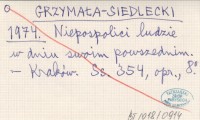 GRZYMAŁA-SIEDLECKI
1974. Niepospolici ludzie
w dniu swoim powszednim.
– Kraków. Ss. 354, opr., 8°